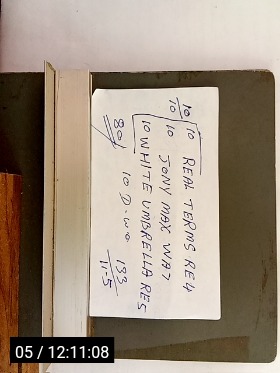 10 10 REAL TERMS RE4
10 10 JONY MAX WAT
10 WHITE UMBRELLA RES
80 10 D. wo 133
11-5
05 / 12:11:08